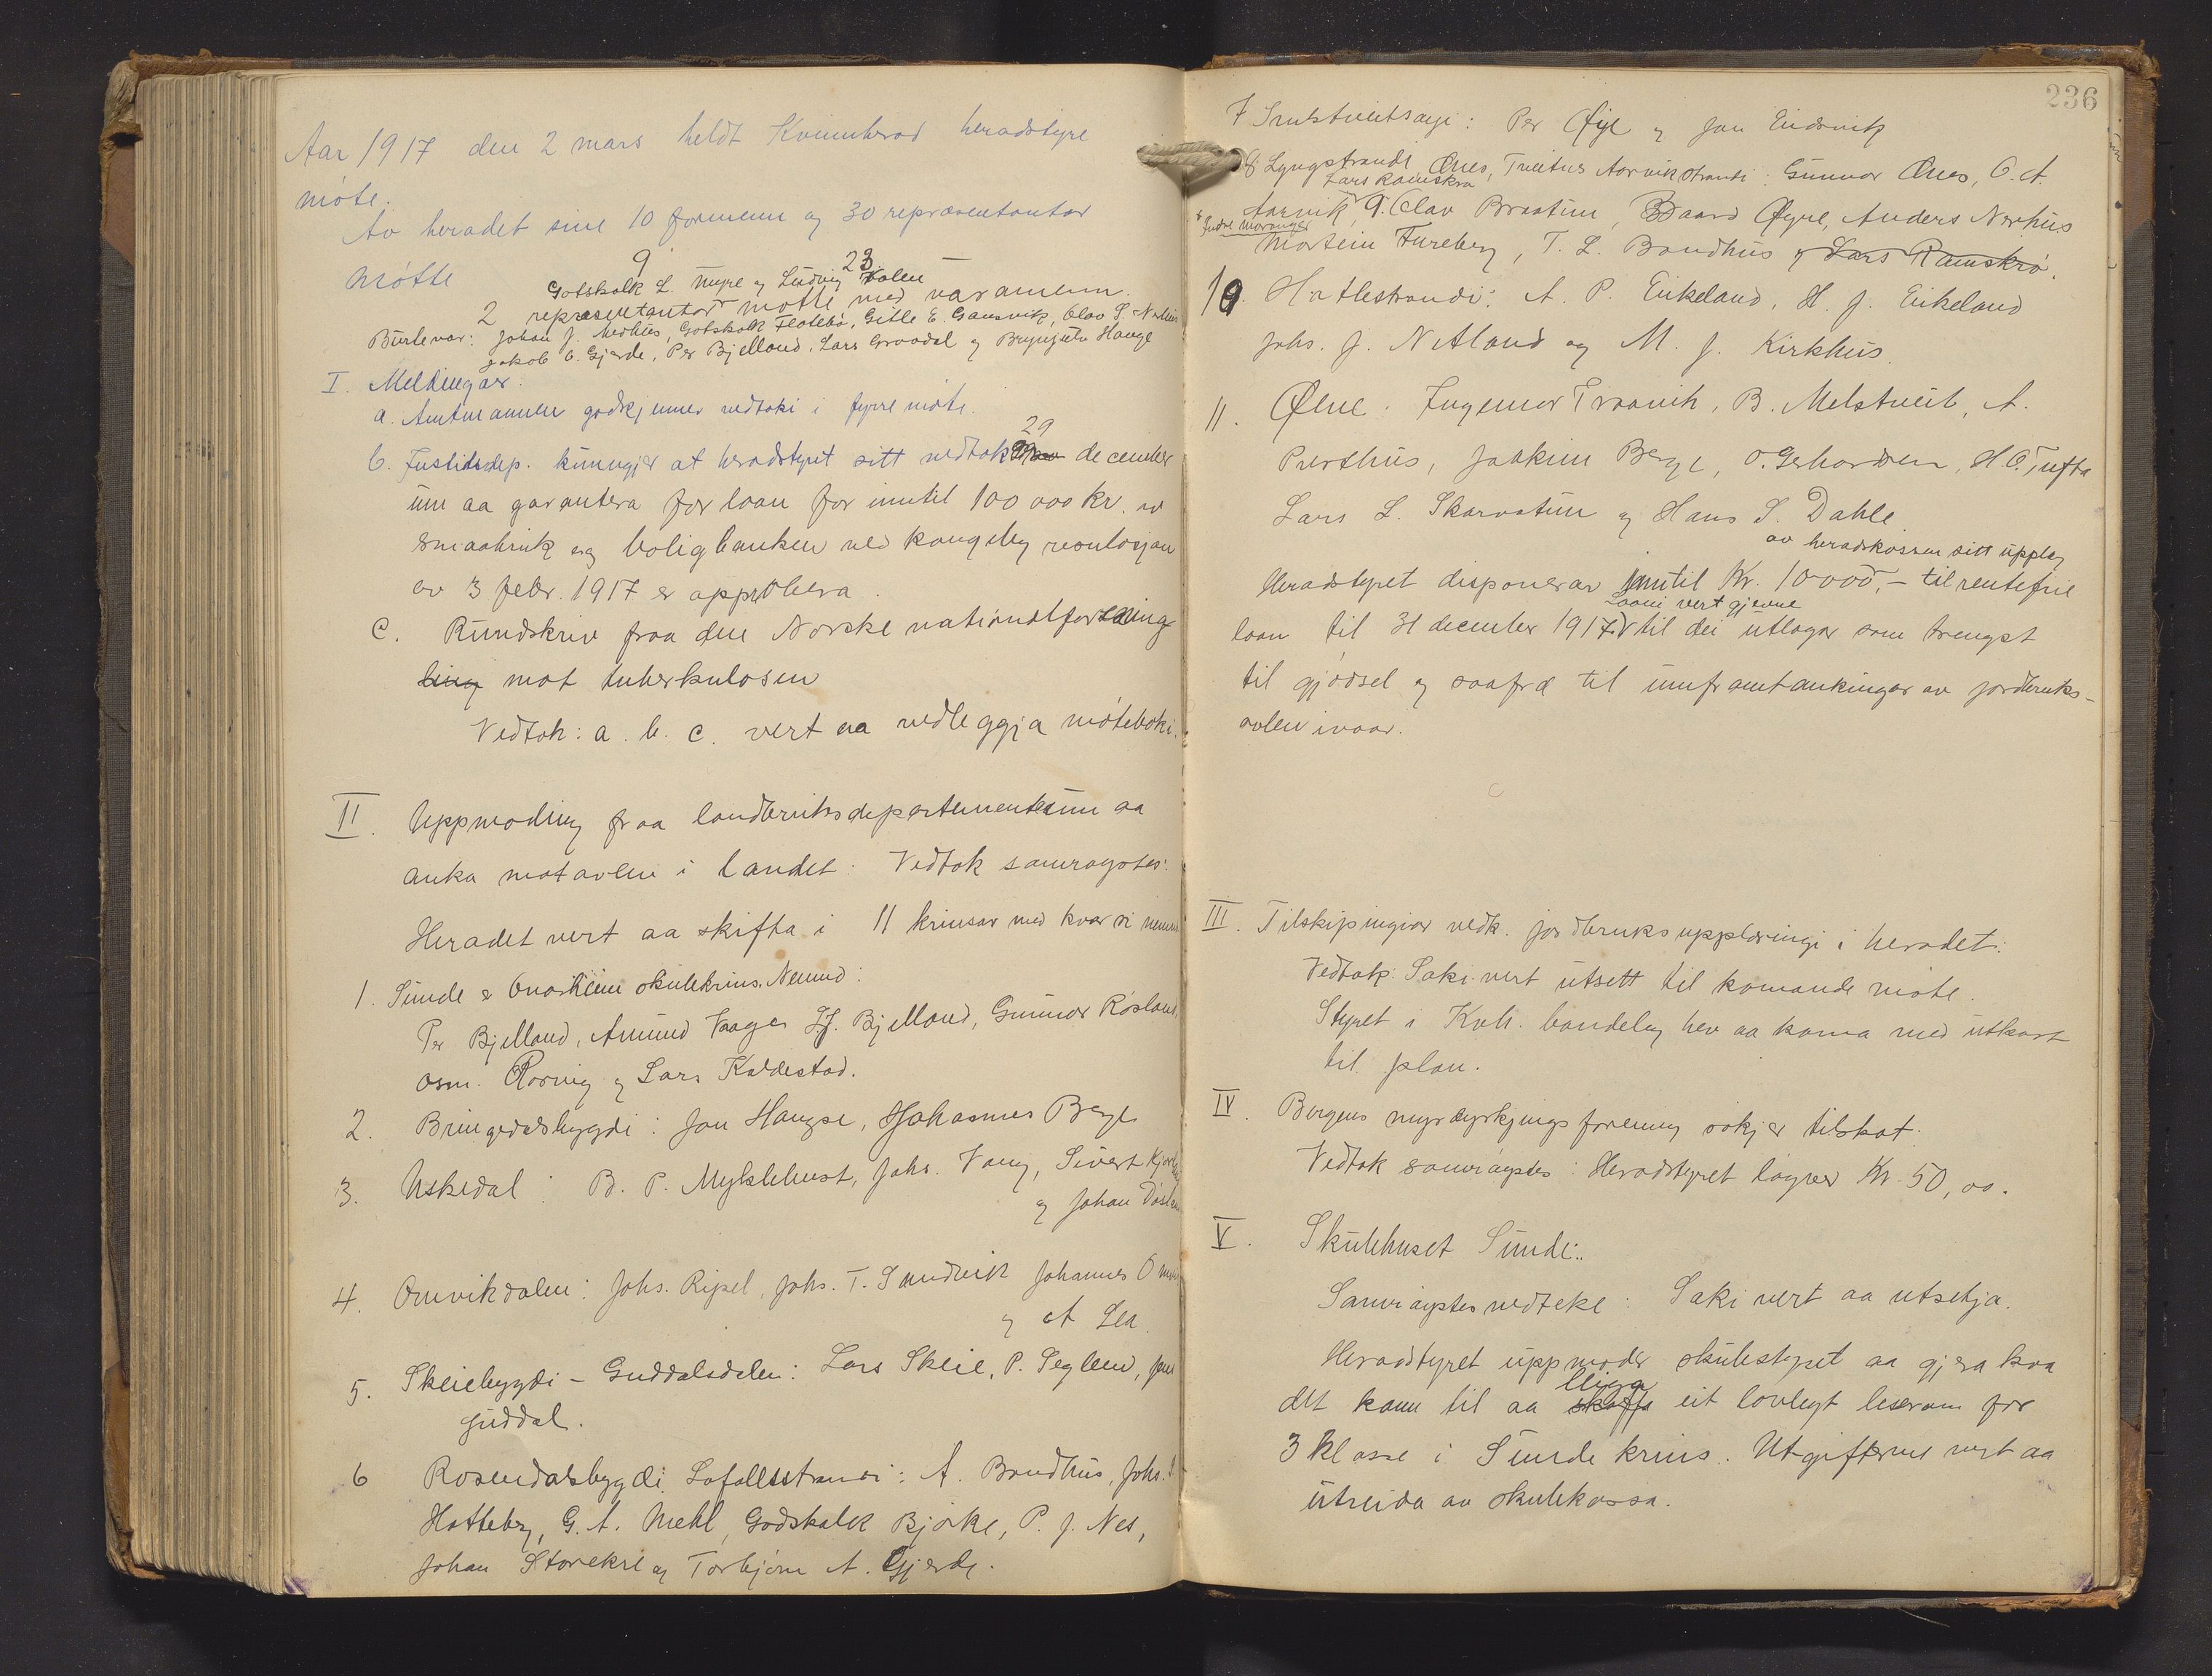 Aar 1917 den 2 mars heldt Kvinnherad heradstyre
møte.
Av heradet sine 10 formenn og 30 representantar
møtte 9 23
Gotskalk L. Myre og Ludvig Valen
2 representantar møtte med varamenn.
Burte var: Johan J. Nerhus, Gotskalk Flatebø, Gitle E. Gausvik, Olav S. Nerhus
Jakob O. Gjerde, Per Bjelland, Lars Gravdal og Brynjulv Hauge
I Meldingar.
a. Amtmannen godkjenner vedtaki i fyrre møte.
29
b. Justisdep. kunngjer at heradstyret sitt vedtak december
um aa garantera for loan for inntil 100 000 kr. av
smaabruk og boligbanken ved kongeleg resolusjon
av 3 febr. 1917 er approbera.
c. Rundskriv fraa den Norske nationalforening
ling mot tuberkulosen
Vedtak: a. b. c. vert aa vedleggja møteboki.
II. Uppmoding fraa landbruksdepartementet um aa
auka matavlen i landet: Vedtak samrøystes:
Heradet vert aa skifta i 11 krinsar med kvar si nemnd
1. Sunde & Onarheim skulekrins. Nemnd:
Per Bjelland, Amund Vaage, J.J. Bjelland, Gunnar Røsland,
Osm. Røring og Lars Kaldestad.
2. Bringedalsbygdi: Jon Haugse, Johannes Berge
3. Uskedal: B. P. Myklebust, Johs. Vang, Sivert
og Johan
4. Omvikdalen: Johs. Ripel, Johs. T. Sandvik Johannes
og A Lea.
5. Skeiebygdi - Guddalsdalen: Lars Skeie, P. Seglem, Jon
Guddal.
6 Rosendalsbygdi. Lofallsstrandi: A. Bondhus, Johs.
Hatteberg, G. A. Mehl, Godskalk Bjørke, P. J. Nes,
Johan Storekre og Torbjørn A. Gjerde.
236
7 : Per Øye og Jon Eidsvik
8 Lyngstrandi Ænes, Tveitnes Aarvikstrandi: Gunnar Ænes, O. A.
Lars Ramskrø
Aarvik, 9. Olav Braatun, Baard Øyre, Anders Nerhus
Indre Moranger
Mortein Fureberg, T. L. Bondhus og Lars Ramskrø.
10. Hatlestrandi: A. P. Eikeland, H. J. Eikeland
Johs. J. Netland og M. J. Kirkhus.
11. Ølve: Ingemor Traavik, B. Melstveit, A.
Presthus, Joakim Berge, O. Gerhardsen, H.O. Tufta
Lars L. Skarvatun og Hans S. Dahle.
av heradskassen sitt upplag
Heradstyret disponerar inntil Kr. 10000,- til rentefrie
Laani vert gjevne
loan til 31 december 1917. V til dei utlagor som trengst
til gjødsel og saafrø til umframtaukingar av jordbruks-
avlen ivaar.
III. Tilskipingar vedk. jordbruksupplæringi i heradet.
Vedtak: Saki vert utsett til komande møte.
Styret i Kvh. bondelag hev aa koma med utkast
til plan.
IV. Bergens myrdyrkjingsforening søkjer tilskot.
Vedtak samrøystes: Heradstyret løyver Kr. 50,00.
V. Skulehuset Sunde:
Samrøystes vedteke: Saki vert aa utsetja.
Heradstyret uppmoder skulestyret aa gjera kva
leiga
det kann til aa skaffa eit lovlegt leserom for
3 klasse i Sunde krins. Utgifterne vert aa
utreida av skulekassa.